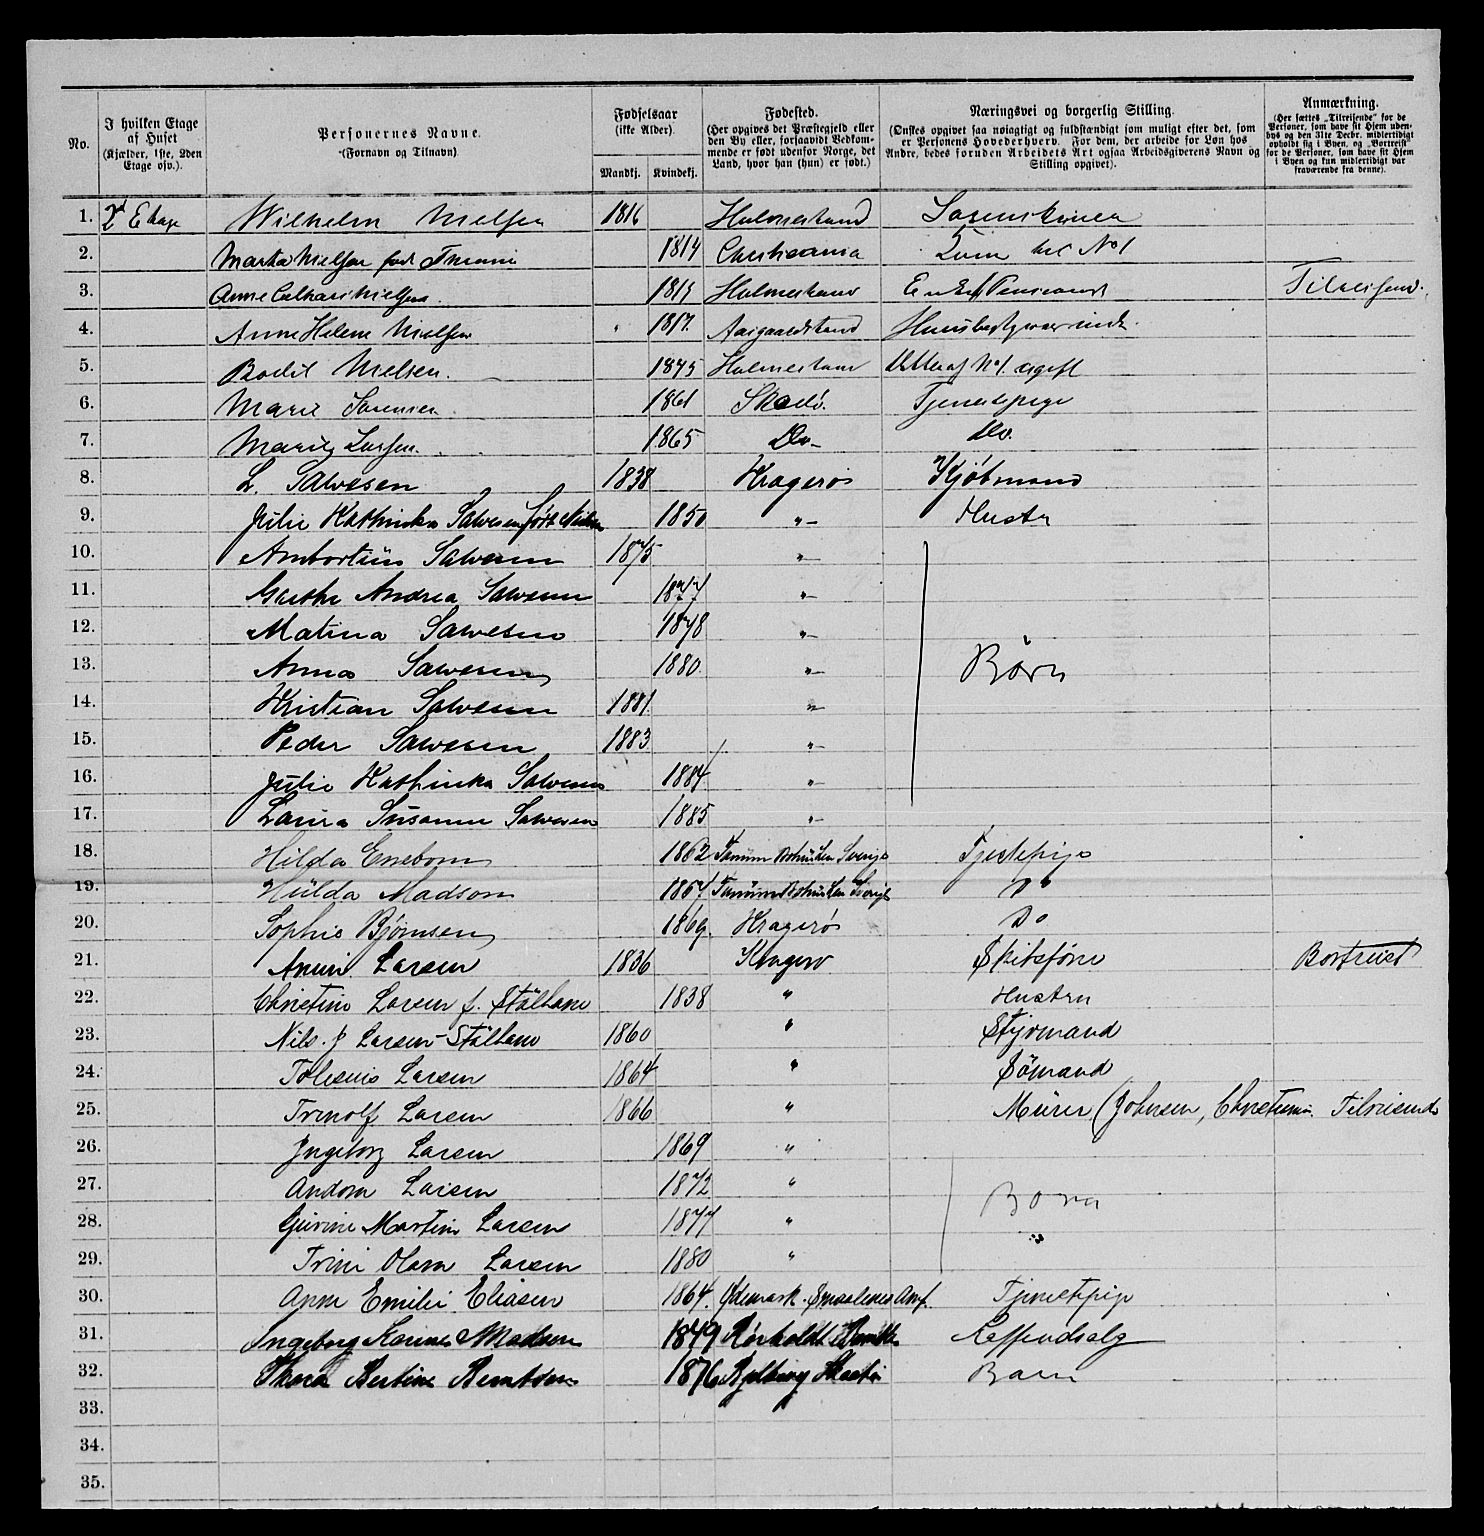 No. I hvilken Etage af Huset (Kjælder, 1ste, 2den Etage osv.). Personernes Navne. (Fornavn og Tilnavn). Fødselsaar (ikke Alder). Mandkj. Kvindekj. Fødested. (Her opgives det Præstegjeld eller den By eller, forsaavidt Vedkommende er født udenfor Norge, det Land, hvor han (hun) er født.) Næringsvei og borgerlig Stilling. (Ønskes opgivet saa nøiagtigt og fuldstændigt som muligt efter det, som er Personens Hovederhverv. For dem, der arbeide for Løn hos Andre, bedes foruden Arbeidets Art ogsaa Arbeidsgiverens Navn og Stilling opgivet). Anmærkning. (Her sættes „Tilreisende" for de Personer, som have sit Hjem udenbys og den 31te Decbr. midlertidigt opholdt sig i Byen, og „Bortreist" for de Personer, som have sit Hjem i Byen og kun midlertidigt var fraværende fra denne).
1. 2d Etage Wilhelm Nielsen 1816 Holmestrand Sorenskriver
2. Marta Nielsen født 1814 Christiania No 1
3. Anne Nielsen 1815 Holmestrand Tilreisend.
4. Anne Helene Nielsen 1817. Aasgaardstrand
5. Bodil Nielsen. 1845 Holmestrand af No 1. ugift
6. Marie Sørensen 1861 Skaatø. Tjenestepige
7. Marie Larsen. 1865 Do- Do.
8. L. Salvesen 1838 Kragerø Kjøbmand
9. Julie Kathinka Salvesen født Nielsen 1850 "- Hustr
10. Salvesen 1875 "-
11. Grethe Andrea Salvesen 1877 "-
12. Matina Salvesen 1878 "-
13. Anna Salvesen 1880. "- Børn
14. Kristian Salvesen 1881. "-
15. Peder Salvesen 1883 "-
16. Julie Kathinka Salvesen 1884. "-
17. Laura Susanne Salvesen 1885 "-
18. Hilda Enebom 1862 Tanum Bohuslen Sverige Tjestepige
19. Hulda Madson 1867. Tanum Bohuslen Sverige Do
20. Sophie Bjørnsen 1869. Kragerø Do
21. Larsen 1836 Kragerø Skibsføre Bortreist
22. Christine Larsen f. Stålhane 1838 " Hustru
23. Nils. J Larsen-Stålhane 1860 " Styrmand
24. Larsen 1864 " Sömand
25. Larsen 1866 " Murer (Johnsen, Tilreisende
26. Ingeborg Larsen 1869 "
27. Larsen 1872 " Børn
28. Gurine Martine Larsen 1877 " "
29. Trine Larsen 1880 "
30. Anne Emilie Eliasen 1864. Ødemark. Smaalenes Amt. Tjenestpige
31. Ingeborg Karine Madsen 1849 Kaffeudsalg
32. Thora Bertine Berntsen 1876 Barn
33.
34.
35.